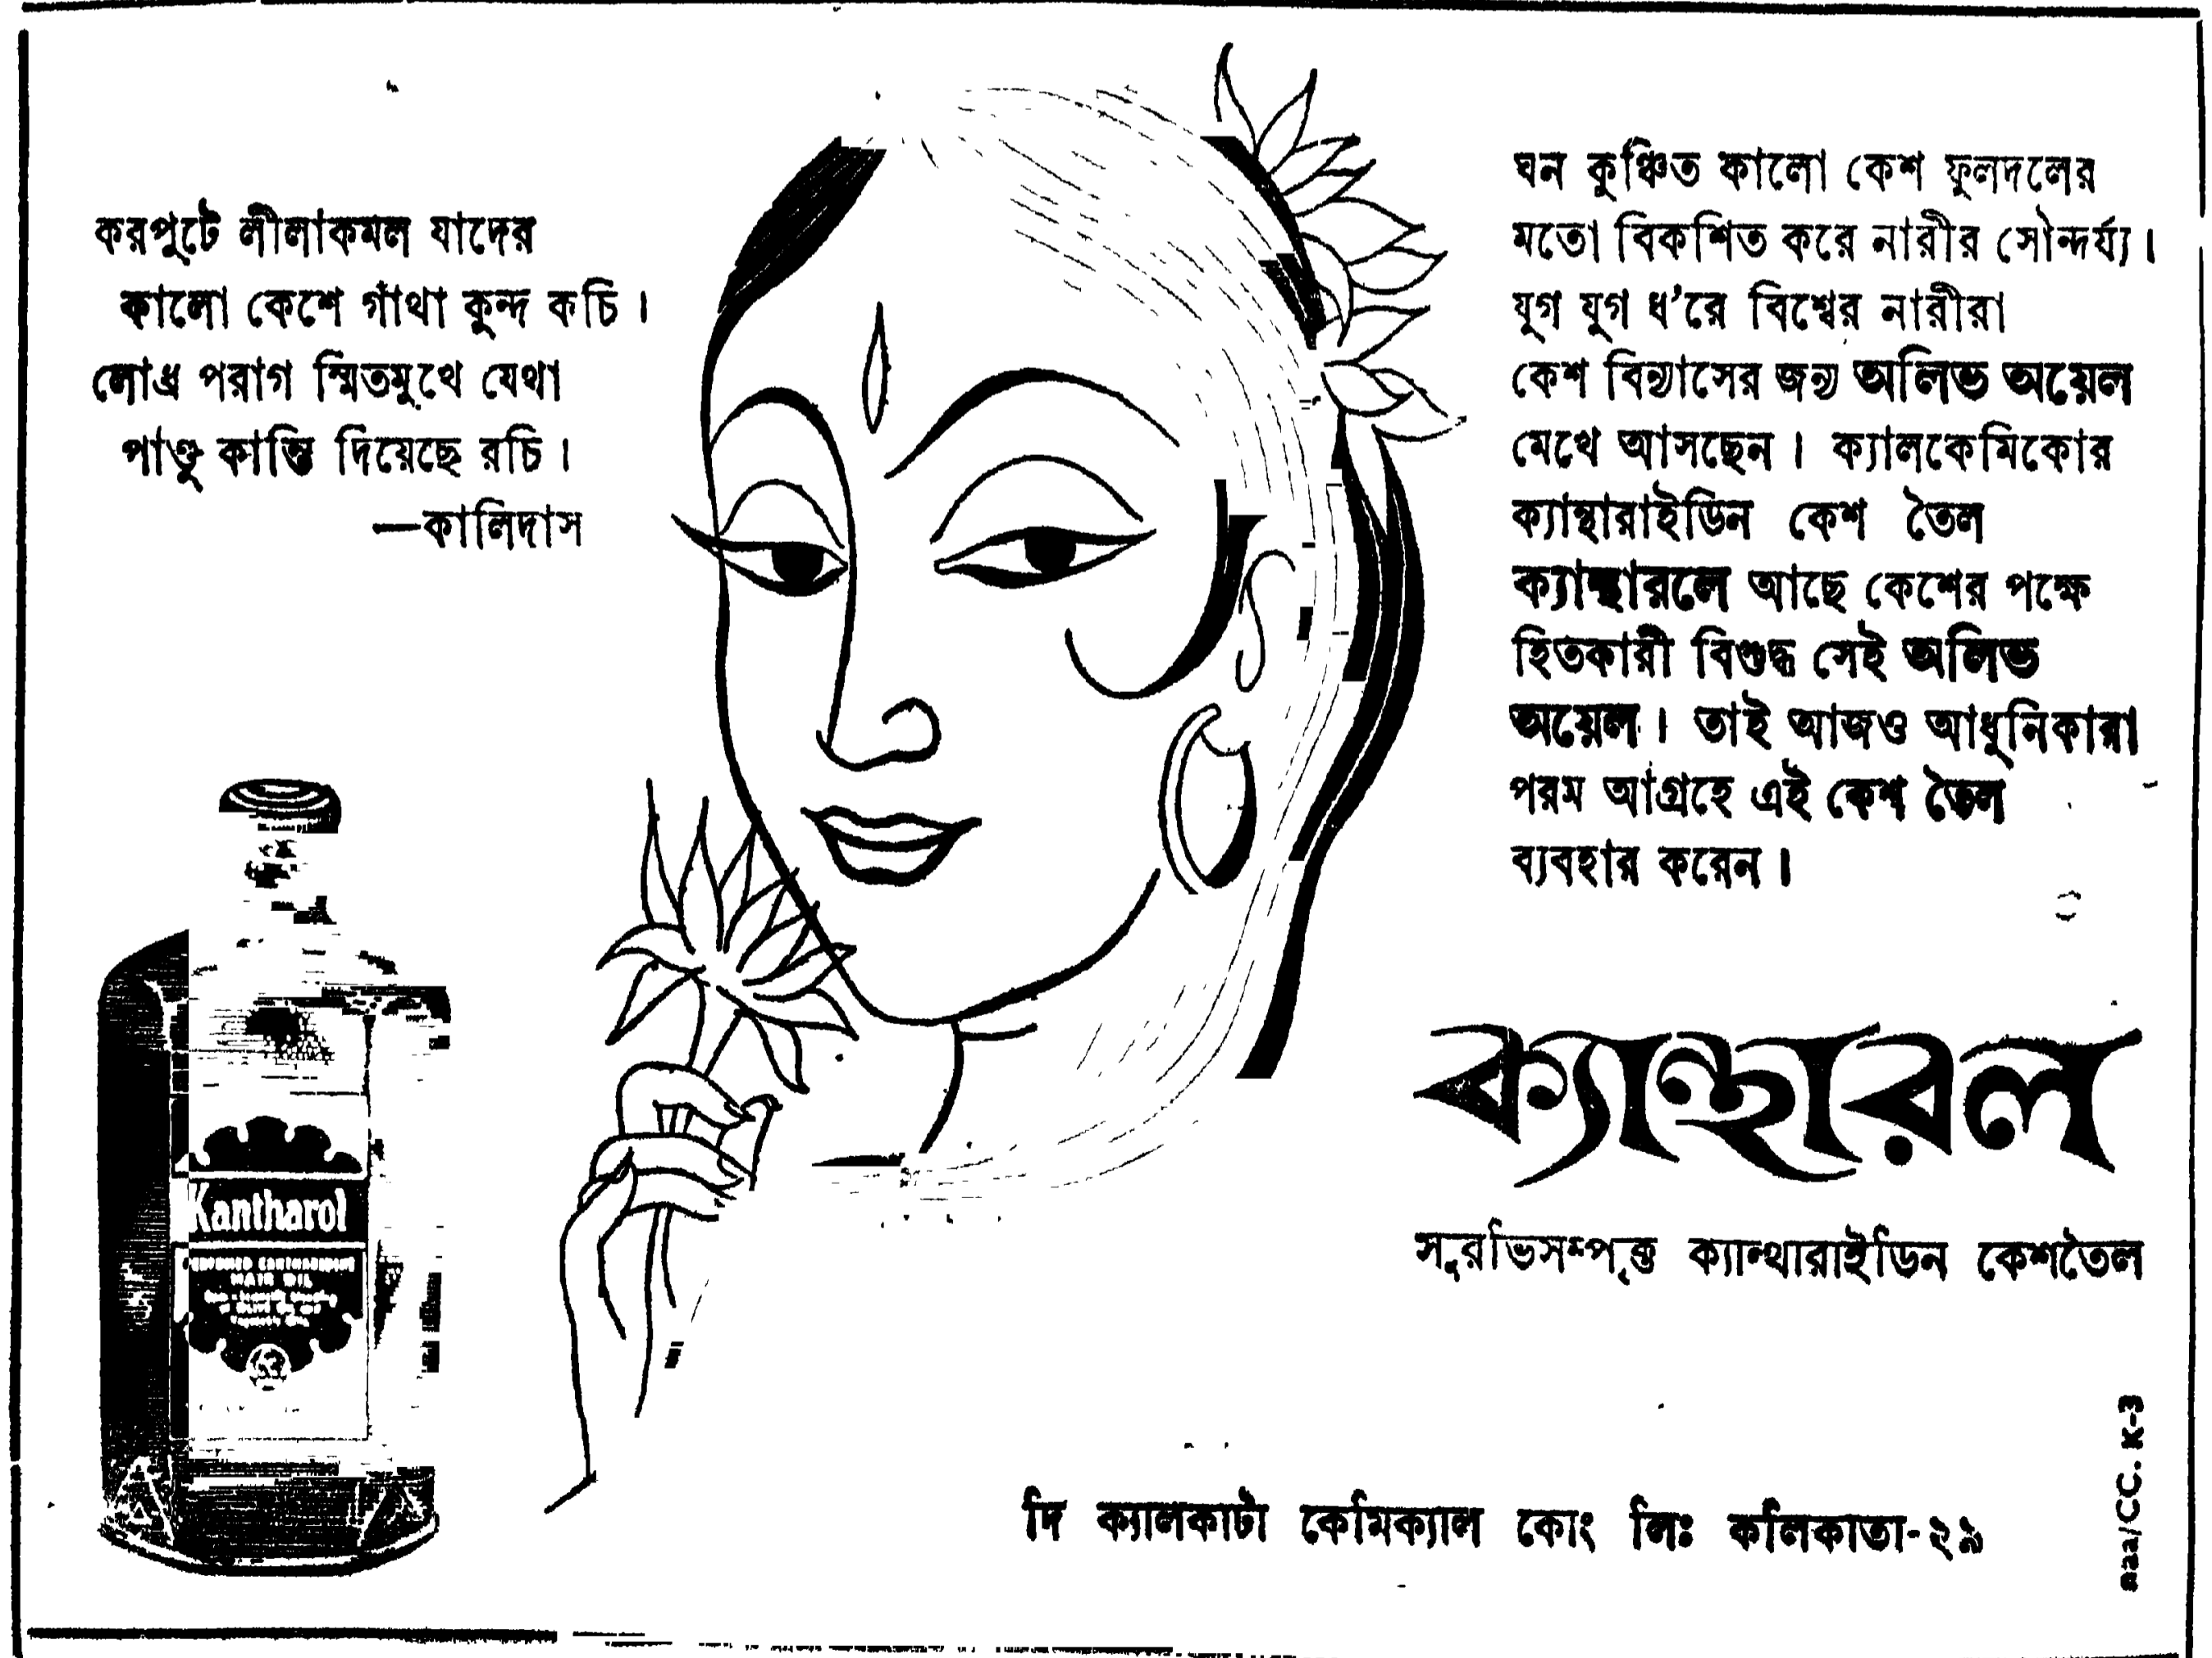 করপুটে লীলাকমল যাদের
কালো কেশে গাঁথা কুন্দ কচি।
লোধ্র পরাগ স্মিতমুখে যেথা
পাণ্ডু কান্তি দিয়েছে রচি।
—কালিদাস
ঘন কুঞ্চিত কালো কেশ ফুলদলের
মতো বিকশিত করে নারীর সৌন্দর্য্য।
যুগ যুগ ধ'রে বিশ্বের নারীরা
কেশ বিন্যাসের জন্য অলিভ অয়েল
মেখে আসছেন। ক্যালকেমিকোর
ক্যান্থারাইডিন কেশ তৈল
ক্যান্থারলে আছে কেশের পক্ষে
হিতকারী বিশুদ্ধ সেই অলিভ
অয়েল। তাই আজও আধুনিকারা
পরম আগ্রহে এই কেশ তৈল
ব্যবহার করেন।
Kantharol
HAIR OIL
ক্যান্থারল
সুরভিসম্পৃক্ত ক্যান্থারাইডিন কেশতৈল
দি ক্যালকাটা কেমিক্যাল কোং লিঃ কলিকাতা-২৯
naa/CC. K-3